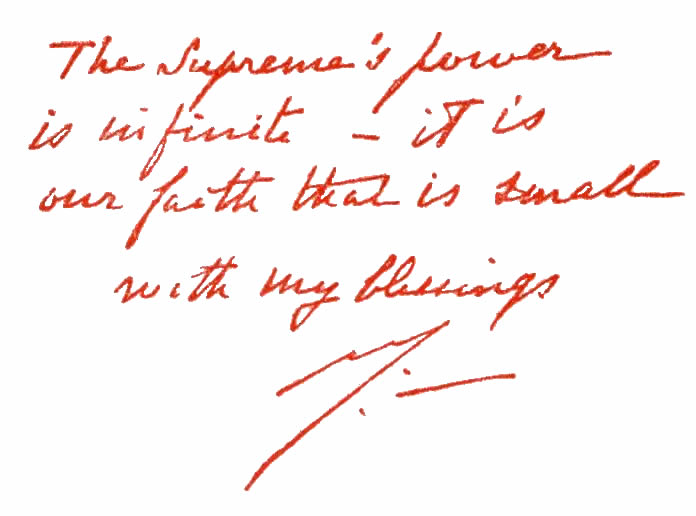 The Supreme's power
is infinite – it is
our faith that is small
with my blessings